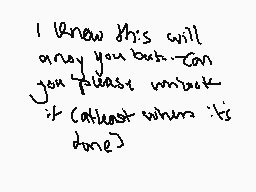 I know this will
anoy you but.. Can
you please unlock
it (atleast when it's
done)